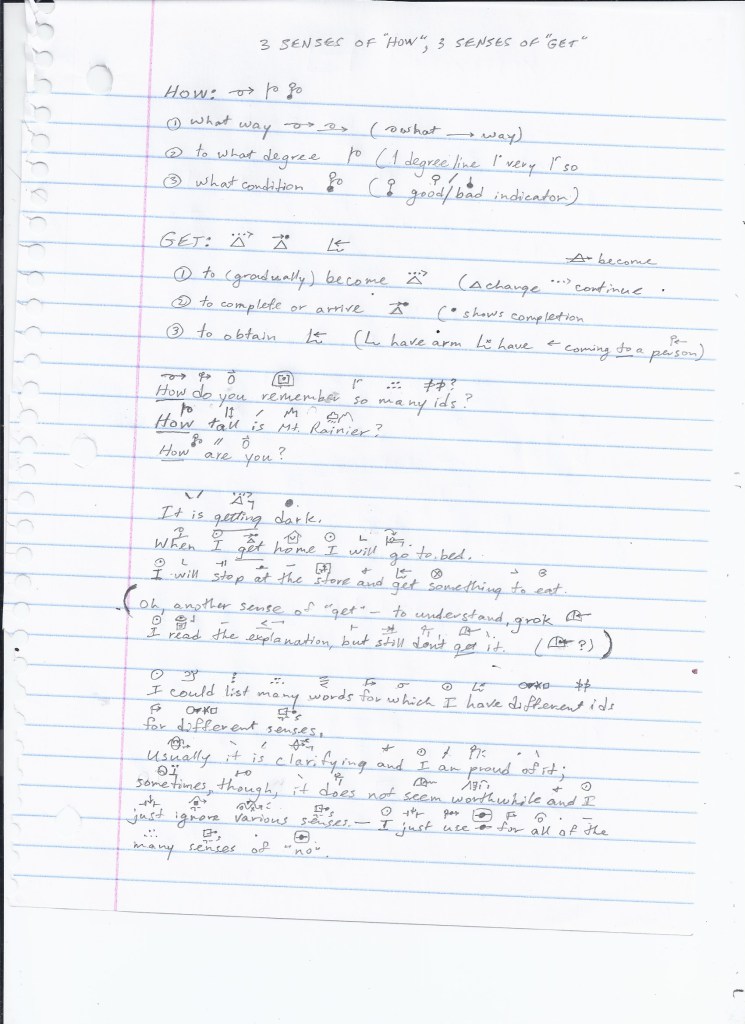 3 SENSES OF "HOW", 3 SENSES OF "GET"
HOW:
① what way ( what → way)
② to what degree ( degree line very so
③ what condition ( good/bad indicator)
GET:
become
① to (gradually) become (△ change ···> continue
② to complete or arrive (• shows completion
③ to obtain ( have arm have ← coming to a person)
How do you remember so many ids?
How tall is Mt. Rainier?
How are you?
It is getting dark.
When I get home I will go to bed.
I will stop at the store and get something to eat.
(Oh, another sense of "get" – to understand, grok
I read the explanation, but still don't get it. ( ?))
I could list many words for which I have different ids
for different senses.
Usually it is clarifying and I am proud of it;
sometimes, though, it does not seem worthwhile and I
just ignore various senses. – I just use for all of the
many senses of "no".